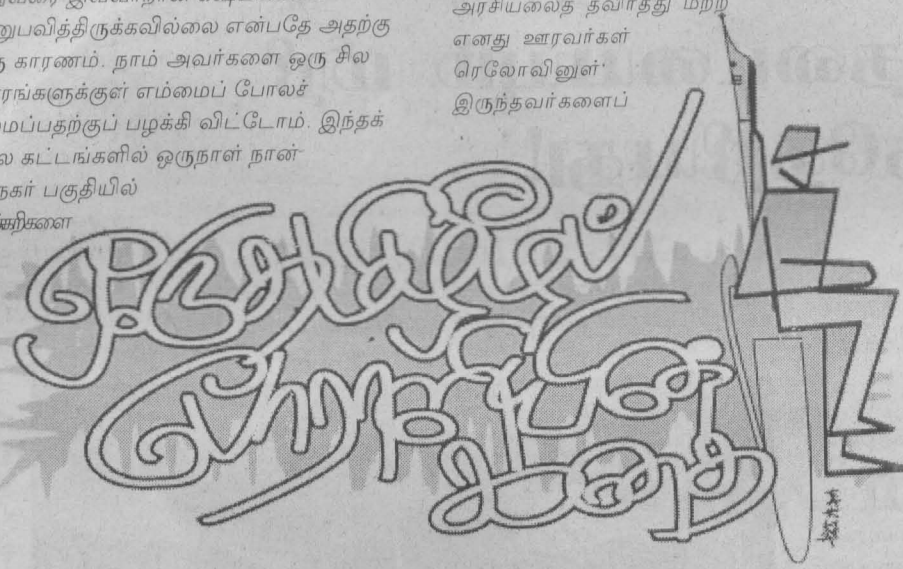 அனுபவித்திருக்கவில்லை என்பதே அதற்கு
காரணம். நாம் அவர்களை ஒரு சில
எம்மைப் போலச்
பழக்கி விட்டோம். இந்தக்
கட்டங்களில் ஒருநாள் நான்
நகர் பகுதியில்
அரசியலைத் தவிர்த்து மற்ற
எனது ஊரவர்கள்
ரெலோவினுள்
இருந்தவர்களைப்
ஒரு தமிழீழப்
போராளியின்
கதை